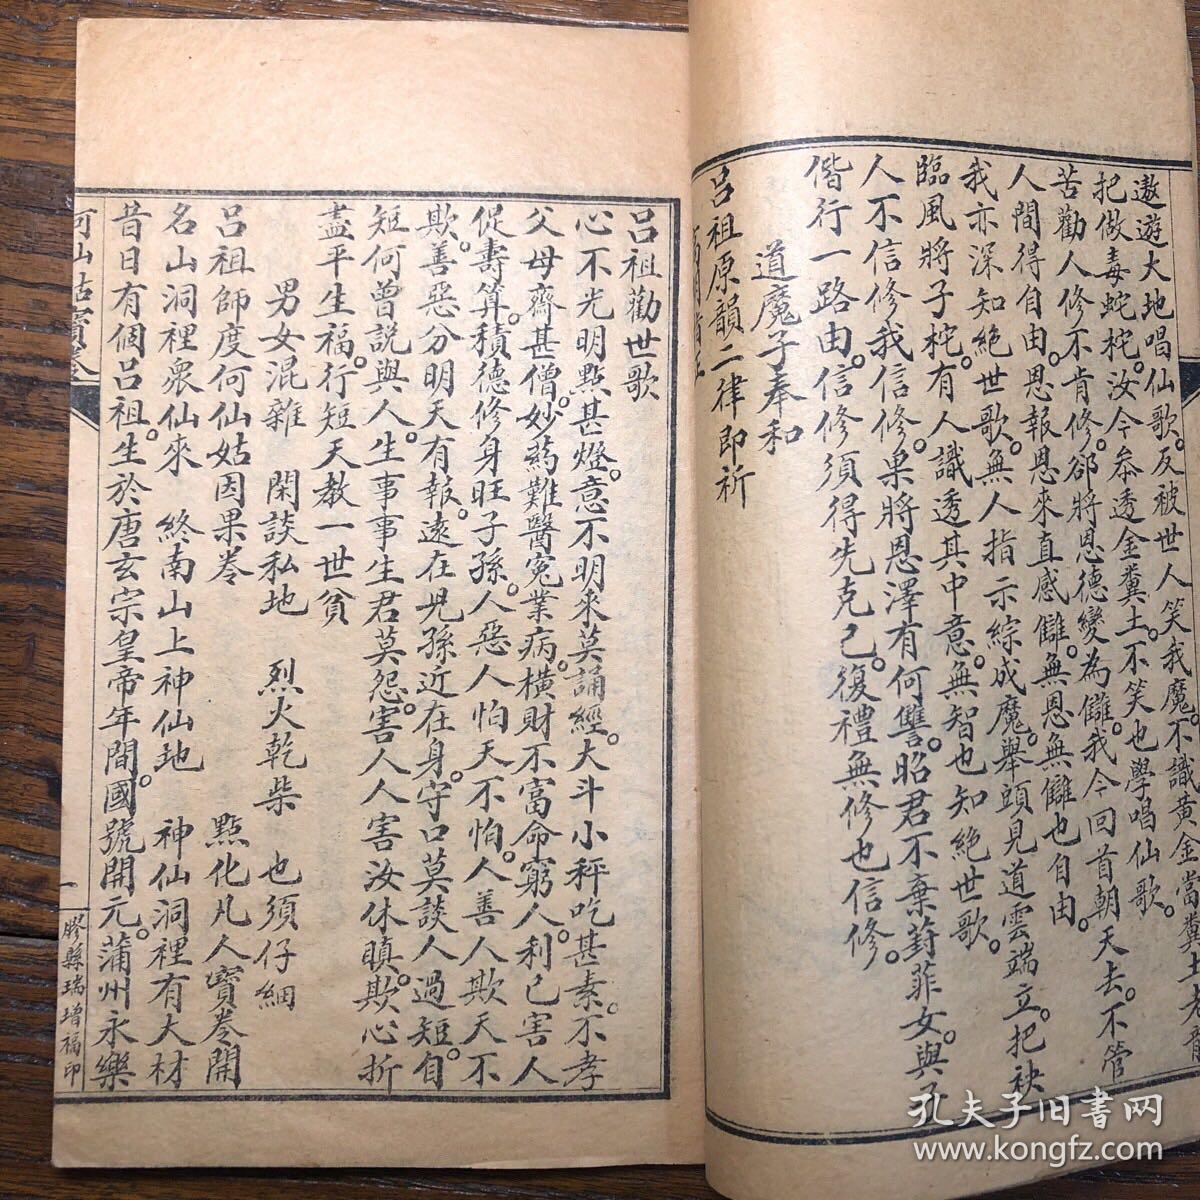 遨遊大地唱仙歌。反被世人笑我魔。不識黃金當糞土
把做毒蛇柁。汝今叅透金糞土。不笑也學唱仙歌。
苦勸人修不肯修。郤將恩德變為讎。我今回首朝天去。不管
人間得自由。恩報恩來直感讎。無恩無讎也自由。
我亦深知絕世歌。無人指示綜成魔。舉頭見道雲端立。把袂
臨風將子柁。有人識透其中意。無智也知絕世歌。
人不信修我信修。果將恩澤有何讐。昭君不棄葑菲女。與子
偕行一路由。信修須得先克己。復禮無修也信修。
道魔子奉和
呂祖原韻二律即祈
呂祖勸世歌
心不光明點甚燈。意不明來莫誦經。大斗小秤吃甚素。不孝
父母齋甚僧。妙葯難醫寃業病。橫財不富命窮人。利己害人
促壽算。積德修身旺子孫。人惡人怕天不怕。人善人欺天不
欺。善惡分明天有報。遠在兒孫近在身。守口莫談人過短。自
短何曾說與人。生事事生君莫怨。害人人害汝休瞋。欺心折
盡平生福。行短天教一世貧
男女混雜 閑談私地 烈火乾柴 也須仔細
呂祖師度何仙姑因果卷 點化凡人寶卷開
名山洞裡衆仙來 終南山上神仙地 神仙洞裡有大材
昔日有個呂祖。生於唐玄宗皇帝年間。國號開元。蒲州永樂
何仙姑寶卷
一
膠縣瑞增福印
孔夫子旧书网
www.kongfz.com